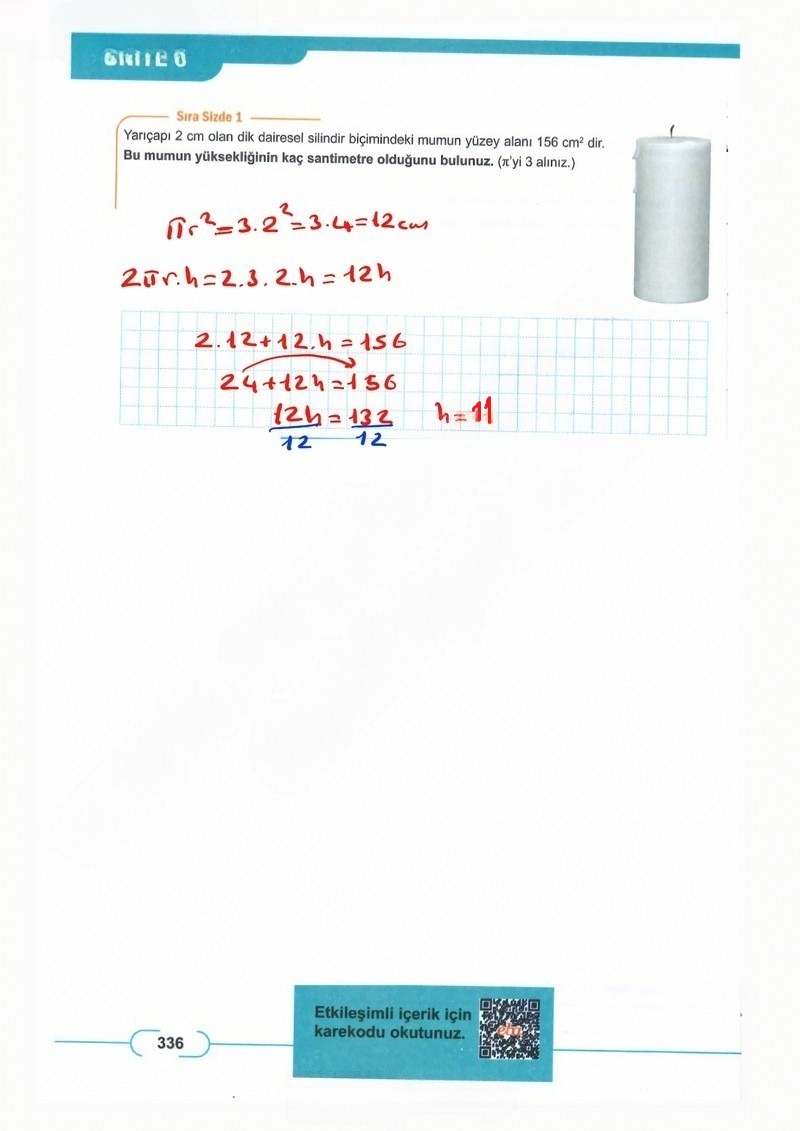 ÜNİTE 6
Sıra Sizde 1
Yarıçapı 2 cm olan dik dairesel silindir biçimindeki mumun yüzey alanı 156 cm² dir.
Bu mumun yüksekliğinin kaç santimetre olduğunu bulunuz. (π'yi 3 alınız.)
πr²=3.2²=3.4=12cm
2πr.h=2.3.2.h=12h
2.12+12.h=156
24+12h=156
12h=132 h=11
12 12
Etkileşimli içerik için
karekodu okutunuz.
eba
336